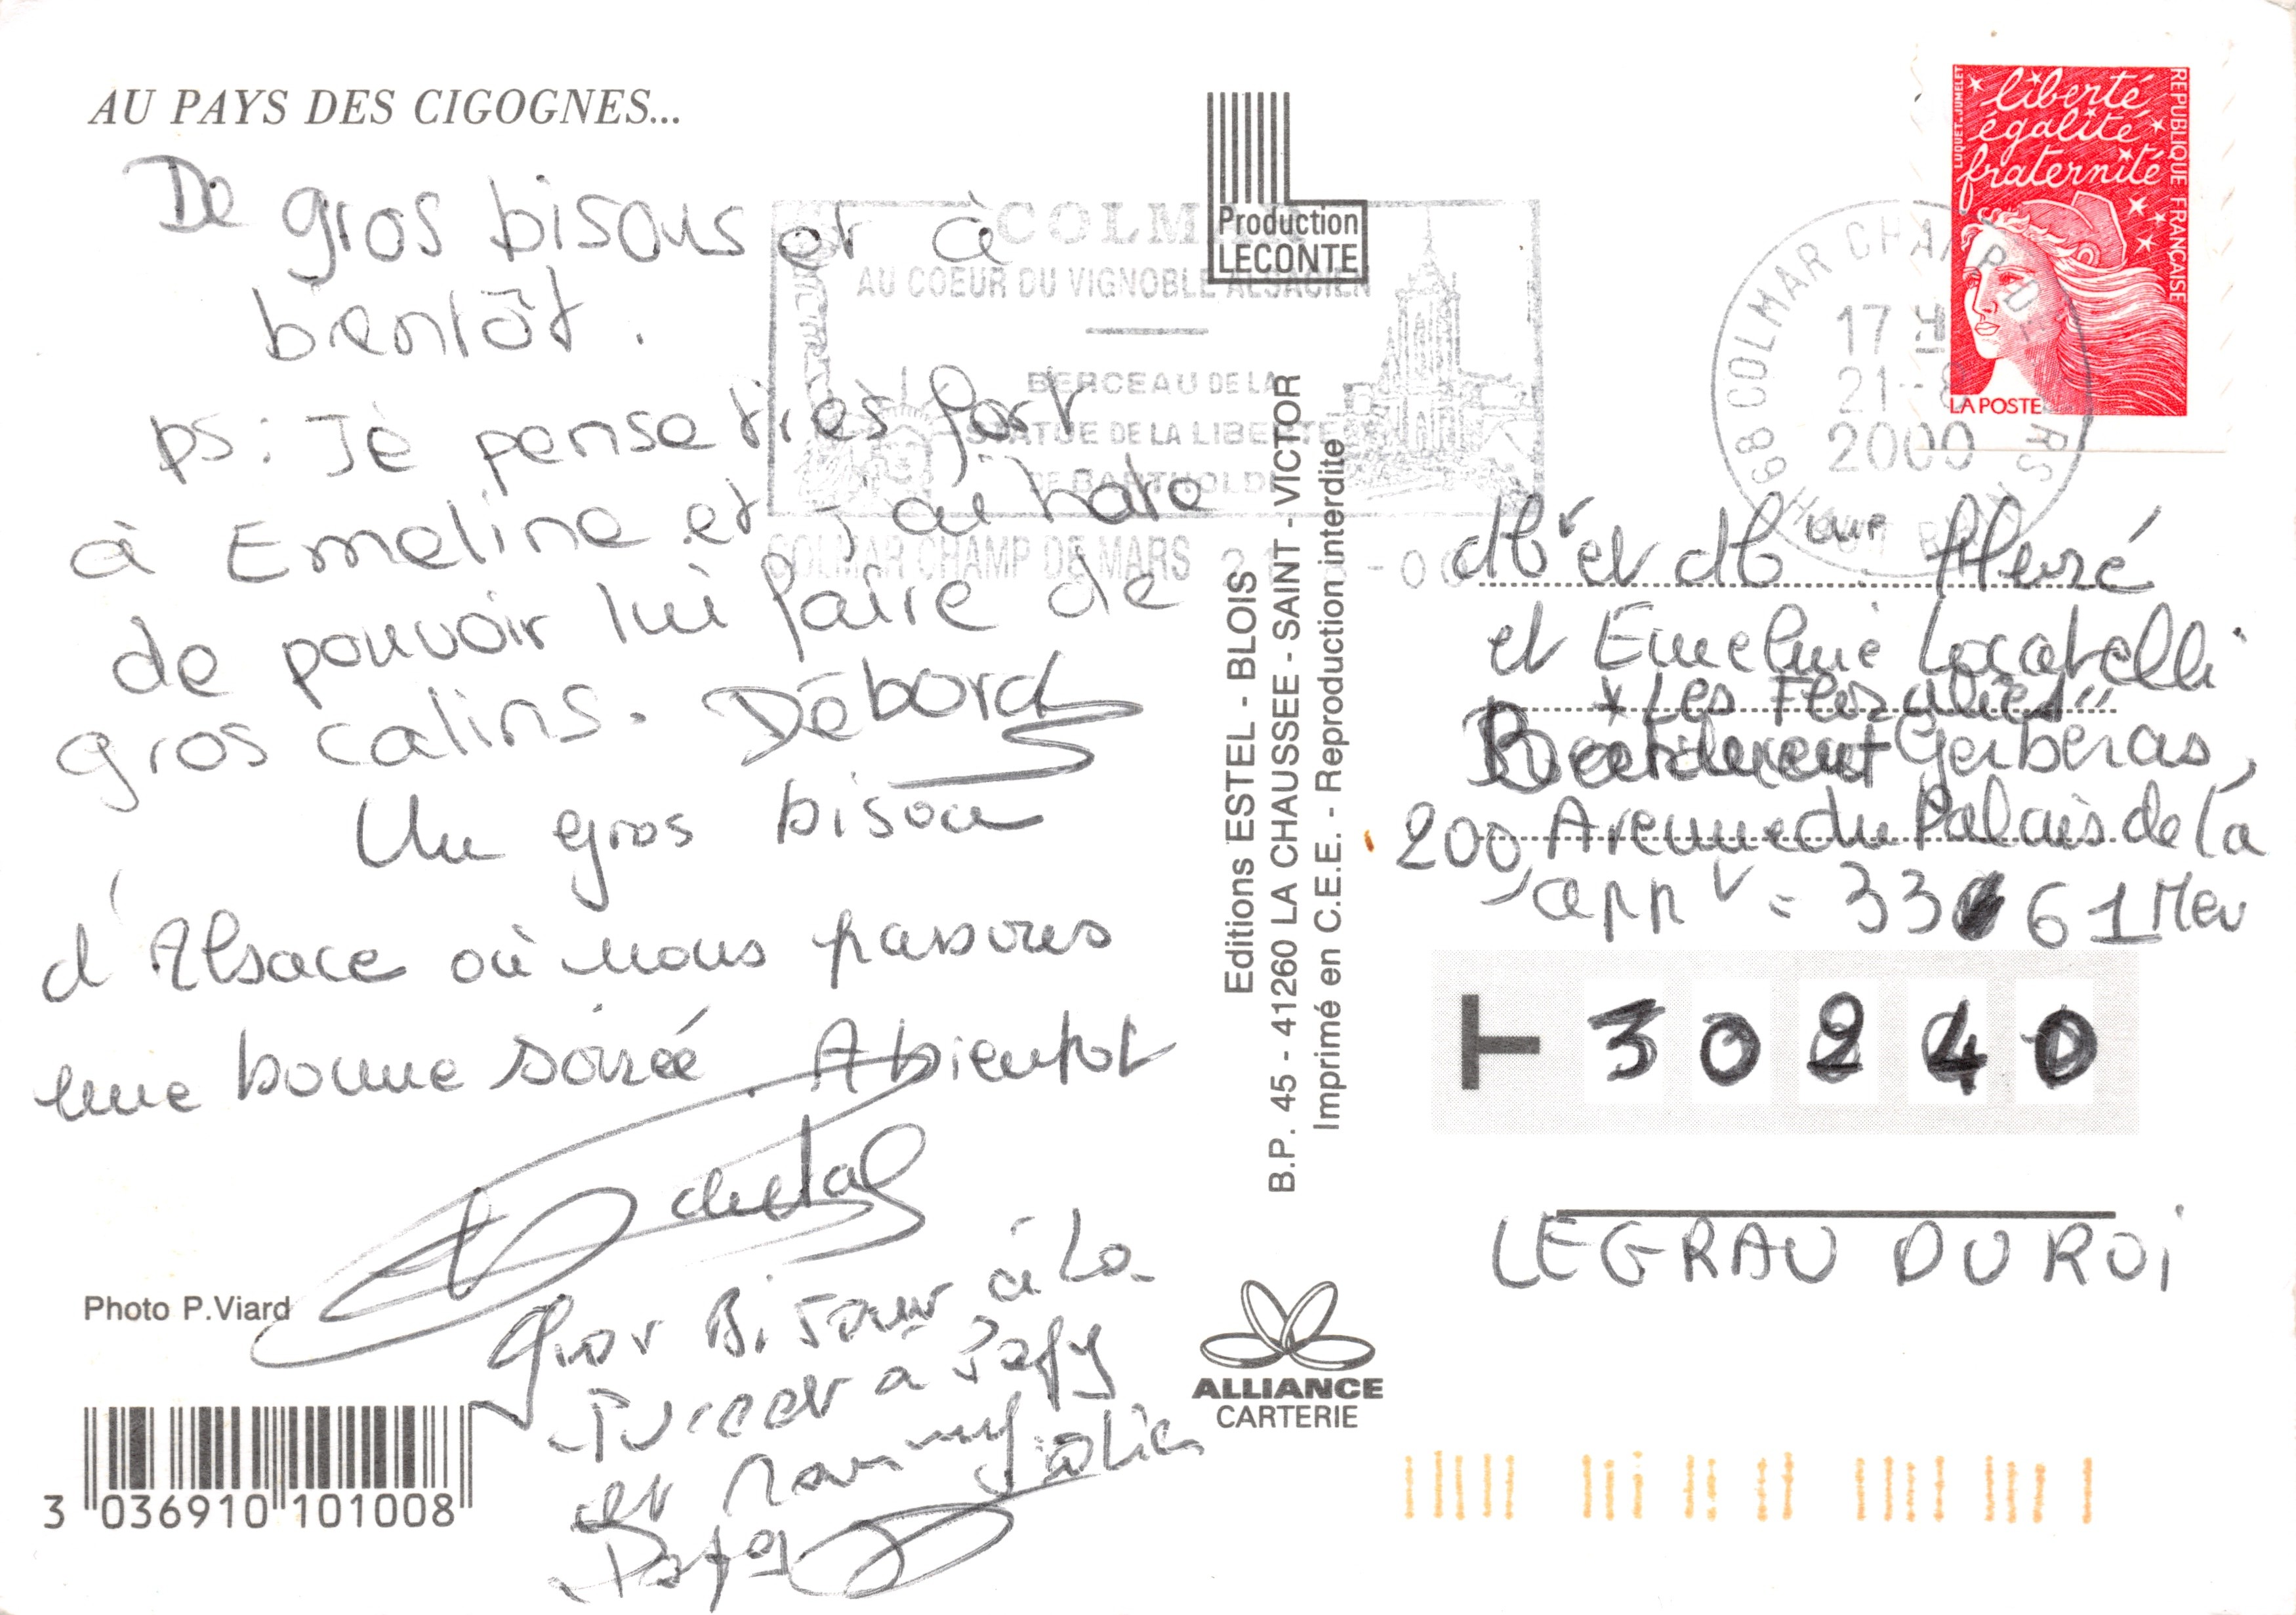 AU PAYS DES CIGOGNES...
De gros bisous et à
bientôt.
ps: Je pense très fort
à Emeline et j'ai hate
de pouvoir lui faire de
gros calins. Débord
Un gros bisou
d'Alsace où nous passons
une bonne soirée. A bientot
Gros Bisous à la
a Papy
et Mamy
Papy
Photo P.Viard
3 036910 101008
Production
LECONTE
COLMAR
AU COEUR DU VIGNOBLE ALSACIEN
BERCEAU DE LA
STATUE DE LA LIBERTE
DE BARTHOLDI
COLMAR CHAMP DE MARS
Editions ESTEL - BLOIS
B.P. 45 - 41260 LA CHAUSSEE - SAINT - VICTOR
Imprimé en C.E.E. - Reproduction interdite
ALLIANCE
CARTERIE
liberté
égalité
fraternité
RÉPUBLIQUE FRANÇAISE
LUQUET-JUMELET
LA POSTE
68 COLMAR CHAMP DE MARS
17 H
21-8
2000
HAUT RHIN
Mr et Mme
et Emeline Locatelli
"Les Floralies"
Batiment Gerberas,
200, Avenue du Palais de la
Mer
app = 33 61
30240
LE GRAU DU ROi